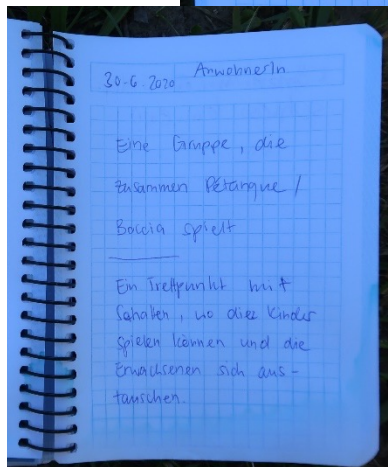 30.6.2020 AnwohnerIn
Eine Gruppe, die
zusammen Pétanque /
Boccia spielt
Ein Treffpunkt mit
Schatten, wo die Kinder
spielen können und die
Erwachsenen sich aus-
tauschen.